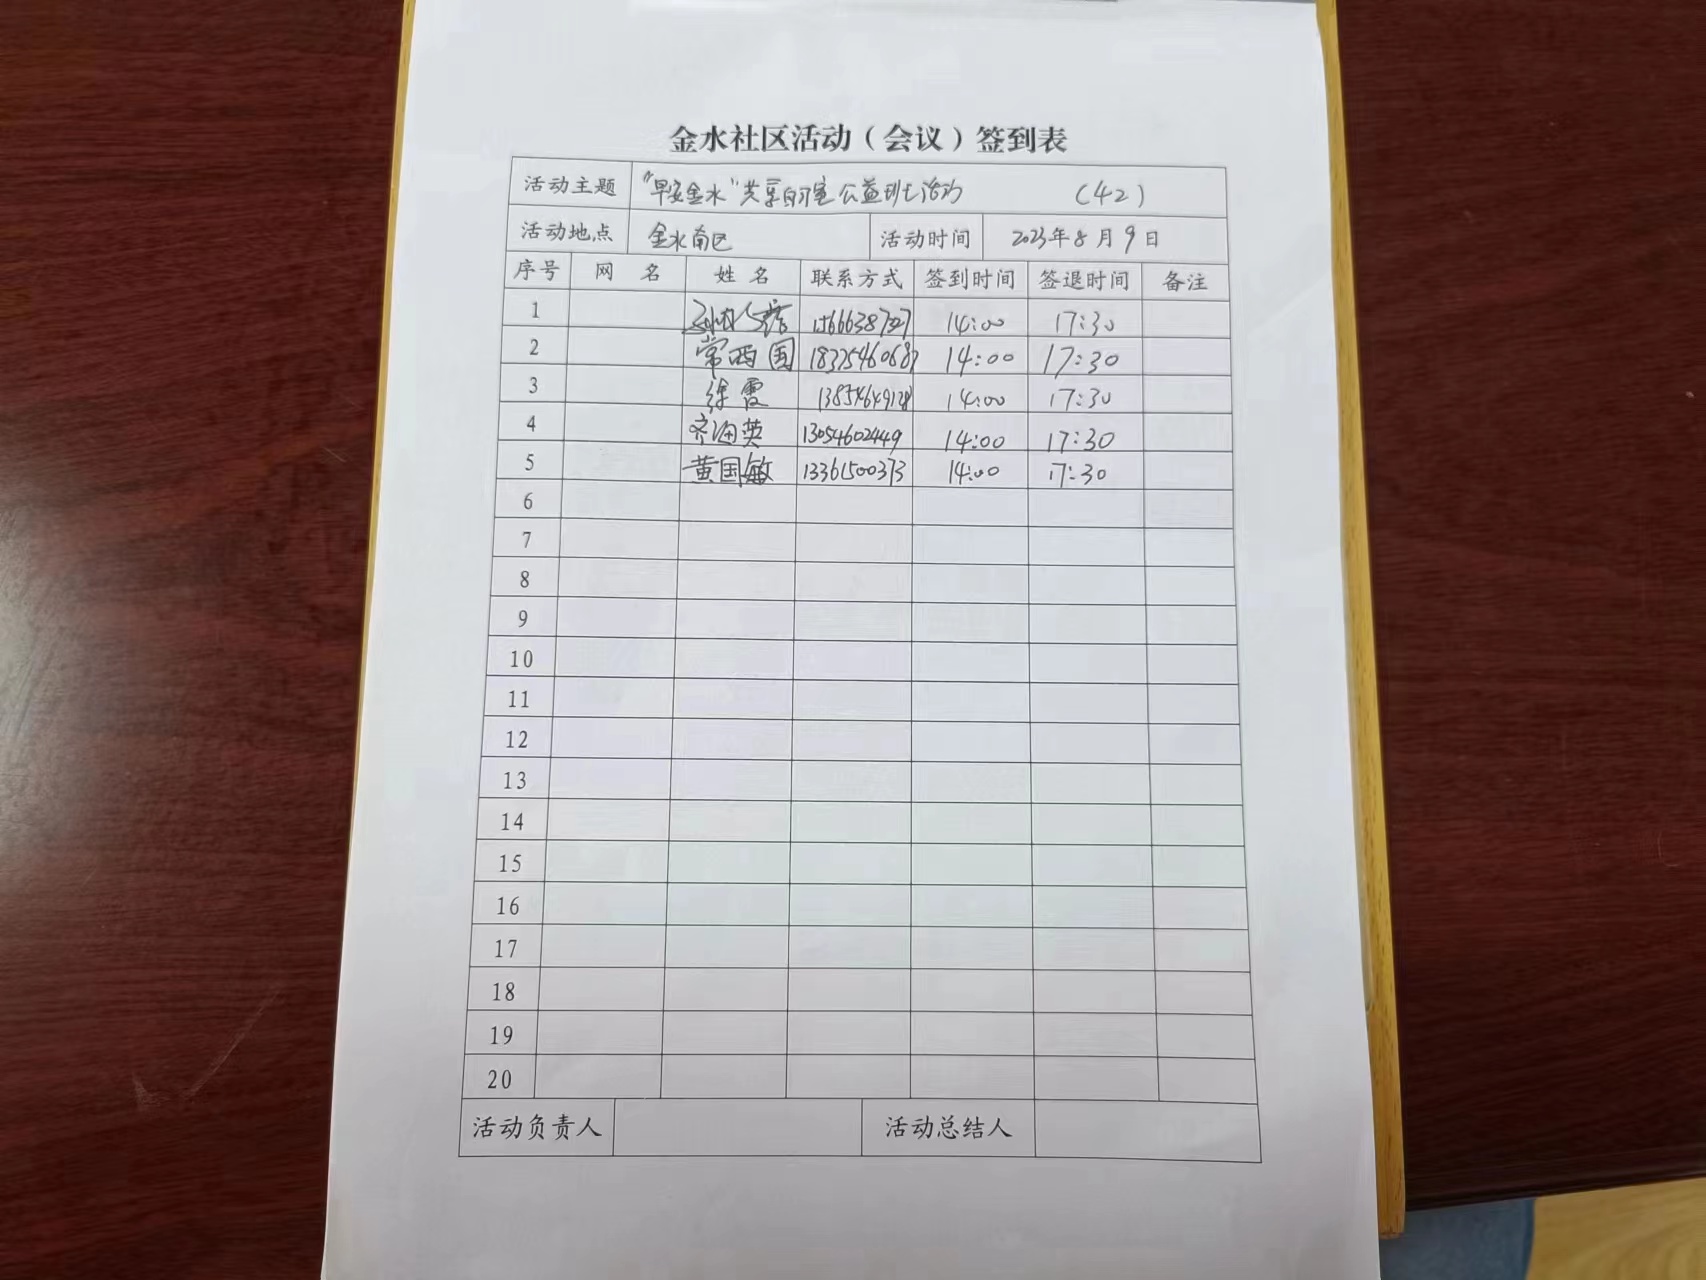 金水社区活动（会议）签到表
活动主题 "早安金水"共享自习室公益托七活动 （42）
活动地点 金水南区 活动时间 2023年8月9日
序号 网 名 姓 名 联系方式 签到时间 签退时间 备注
1 14:00 17:30
2 常西国 1832546068 14:00 17:30
3 徐霞 13854649128 14:00 17:30
4 齐海英 13054602449 14:00 17:30
5 黄国敏 13361500373 14:00 17:30
6
7
8
9
10
11
12
13
14
15
16
17
18
19
20
活动负责人 活动总结人